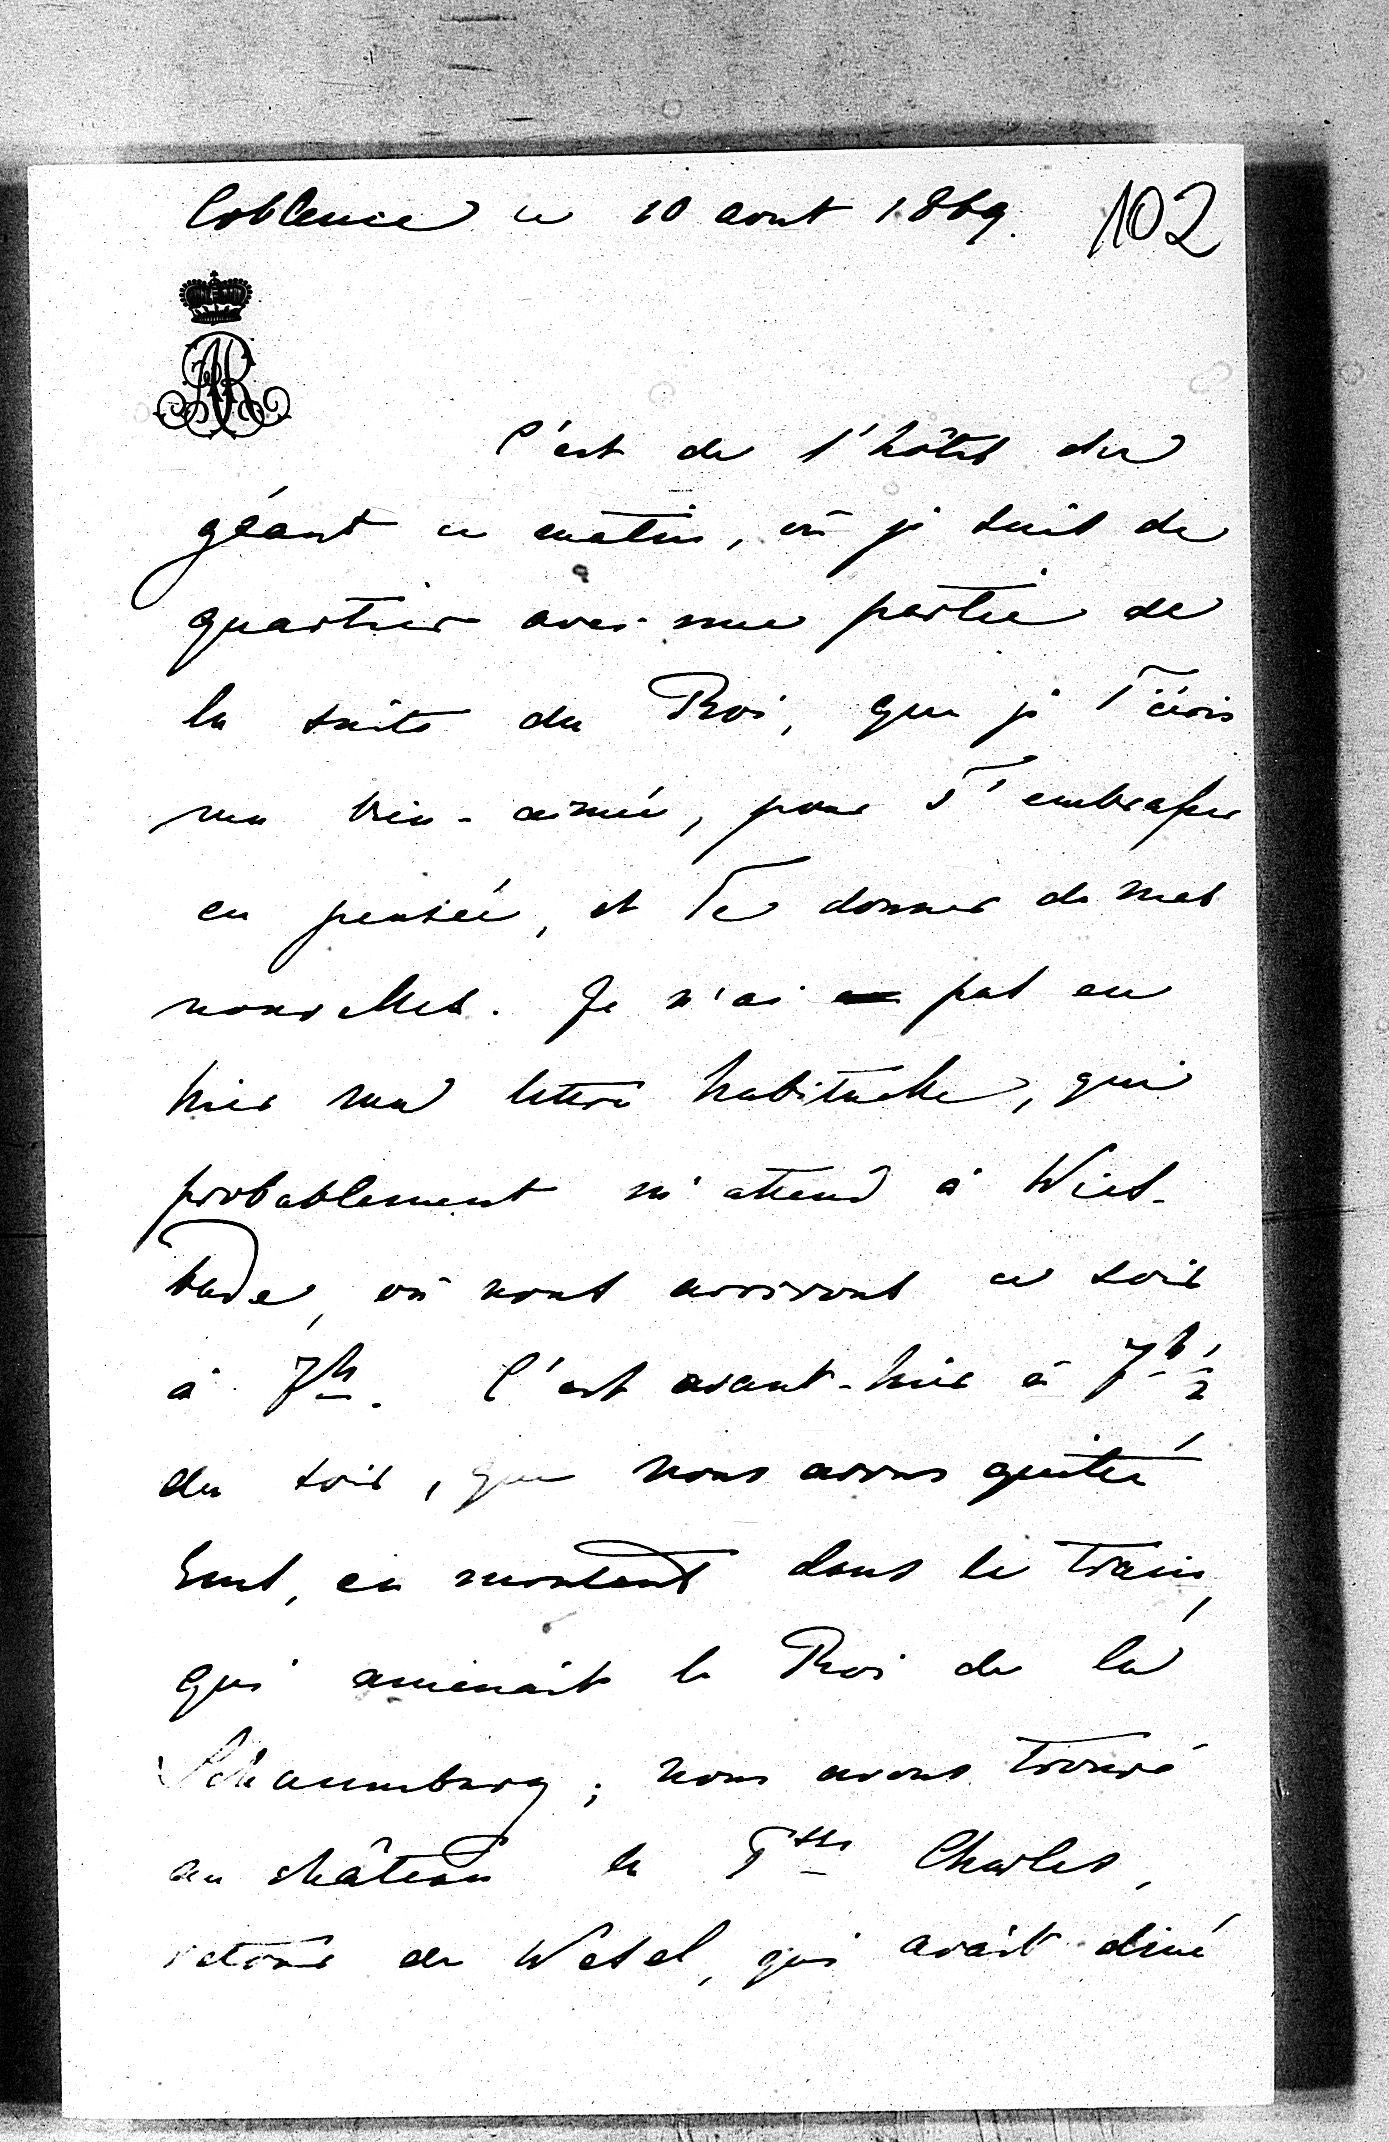 Coblence ce 10 aout 1869.
102
AR
C'est de l'hôtel du
géant ce matin, où je suis de
quartier avec une partie de
la suite du Roi, que je T'écris
ma bien-aimée, pour T'embrasser
en pensée, et Te donner de mes
nouvelles. Je n'ai pas eu
hier ma lettre habituelle, qui
probablement m'attend à Wies-
bade, où nous arrivons ce soir
à 7h. C'est avant-hier à 7h 1/2
du soir, que nous avons quitté
Ems, en montant dans le train,
qui amenait le Roi de la
Schaumburg; nous avons trouvé
au château la Psse Charles,
retour de Wesel, qui avait diné